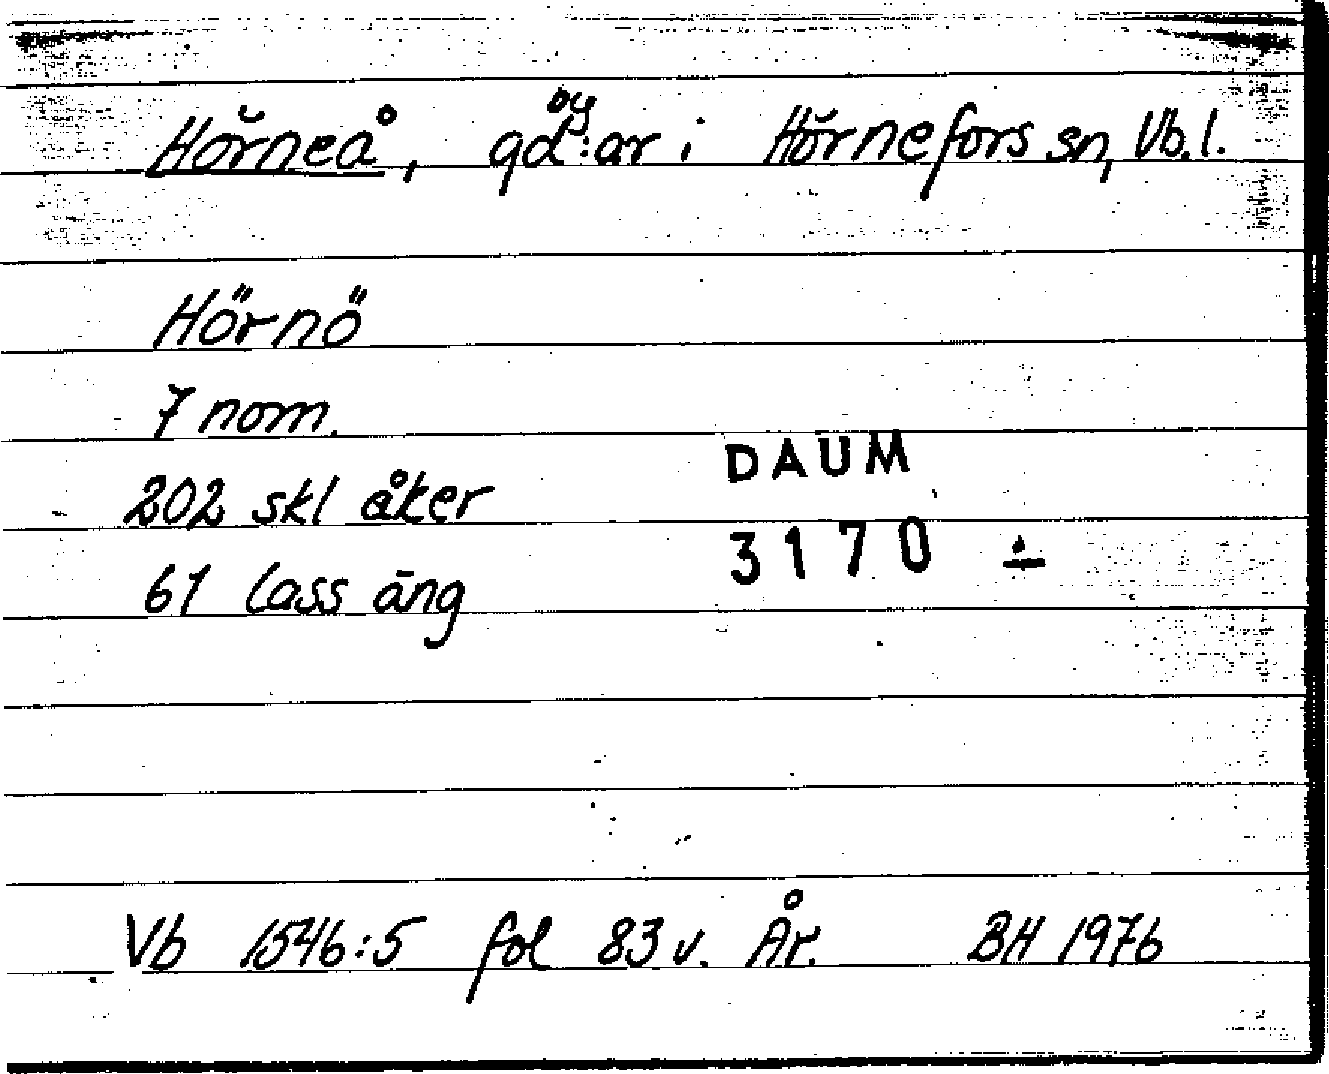 by
Hörneå, gd:ar i Hörnefors sn, Vb.l.
Hörnö
7 nom.
202 skl åker
61 lass äng
DAUM
3170 ∸
Vb 1546:5 fol 83 v. År. BH 1976